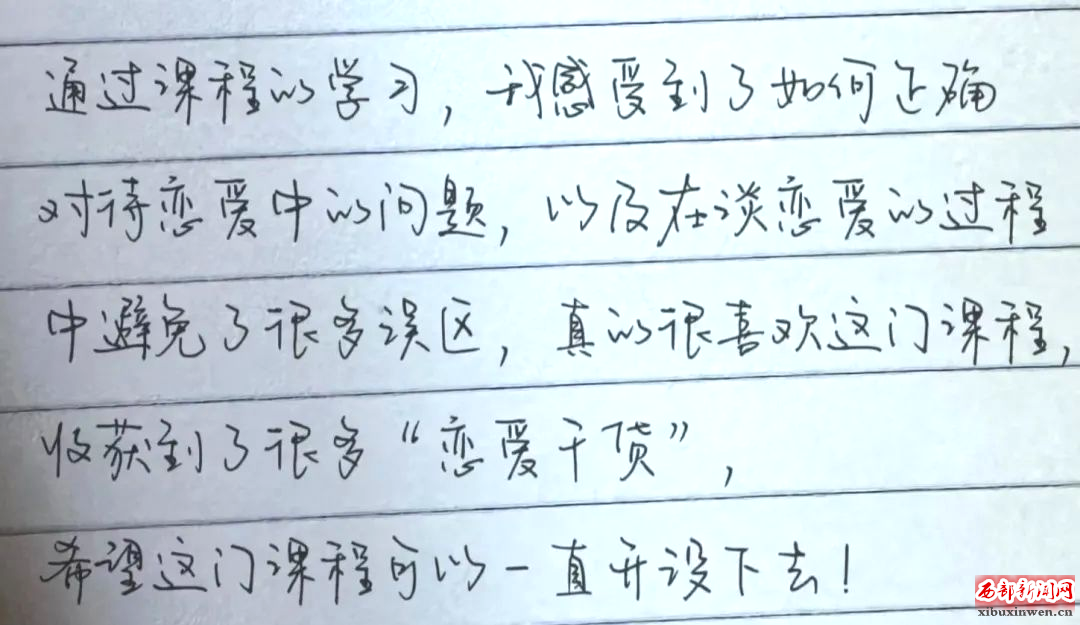 通过课程的学习，我感受到了如何正确
对待恋爱中的问题，以及在谈恋爱的过程
中避免了很多误区，真的很喜欢这门课程，
收获到了很多“恋爱干货”，
希望这门课程可以一直开设下去！
西部新闻网
xibuxinwen.cn